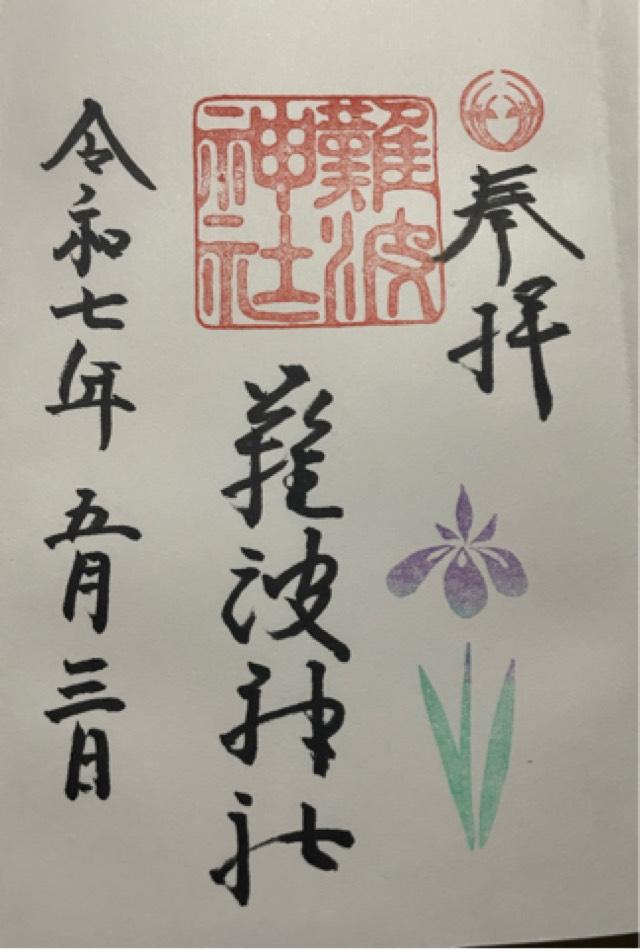 奉拝
難波神社
難波神社
令和七年 五月 三日